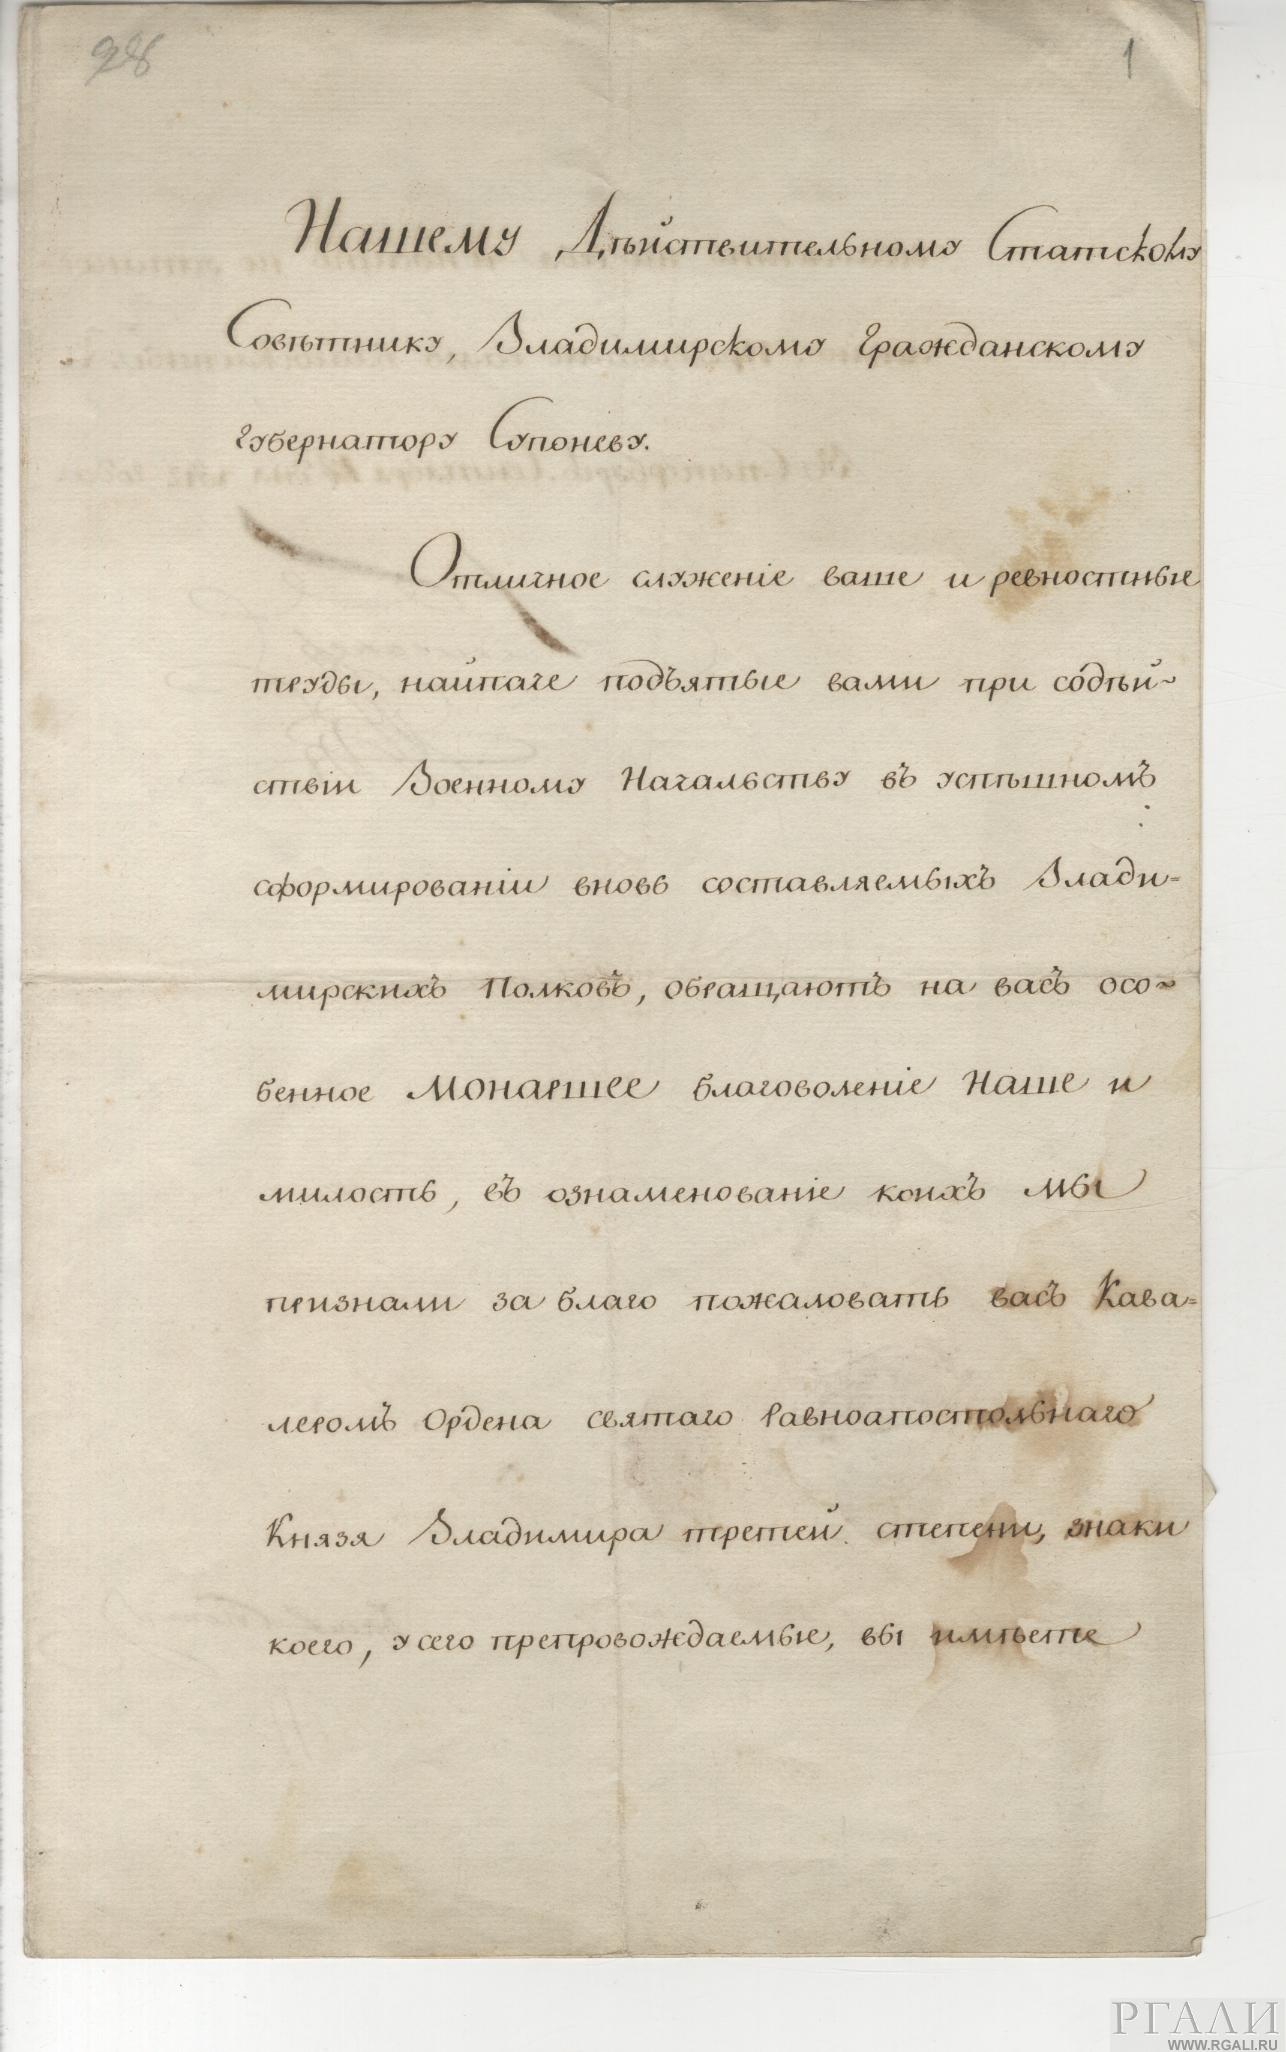 98
1
Нашему Дѣйствительному Статскому
Совѣтнику, Владимирскому Гражданскому
Губернатору Супоневу.
Отличное служеніе ваше и ревностные
труды, наипаче подъятые вами при содѣй-
ствіи Военному Начальству въ успѣшномъ
сформированіи вновь составляемыхъ Влади-
мирскихъ Полковъ, обращаютъ на васъ осо-
бенное Монаршее благоволеніе Наше и
милость, въ ознаменованіе коихъ Мы
признали за благо пожаловать васъ Кава-
леромъ Ордена святаго Равноапостольнаго
Князя Владимира третей степени, знаки
коего, у сего препровождаемые, вы имѣете
РГАЛИ
WWW.RGALI.RU